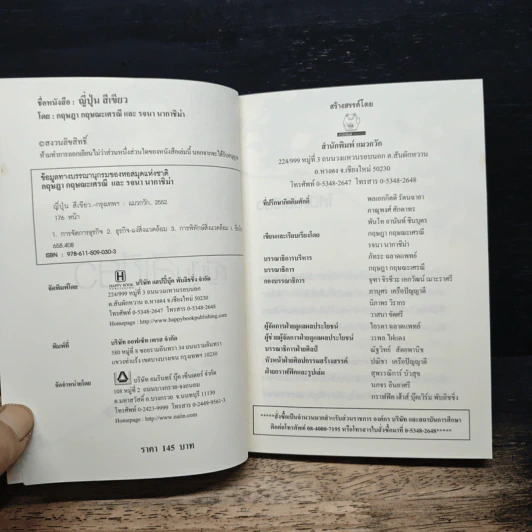 ชื่อหนังสือ : ญี่ปุ่น สีเขียว
โดย : กฤษฎา กฤษณะเศรณี และ รจนา นากาชิม่า
©สงวนลิขสิทธิ์
ห้ามทำการลอกเลียนไม่ว่าส่วนหนึ่งส่วนใดของหนังสือเล่มนี้ นอกจากจะได้รับอนุญาต
ข้อมูลทางบรรณานุกรมของหอสมุดแห่งชาติ
กฤษฎา กฤษณะเศรณี และ รจนา นากาชิม่า
ญี่ปุ่น สีเขียว.-กรุงเทพฯ : แมวกวัก, 2552
176 หน้า
1. การจัดการธุรกิจ 2. ธุรกิจ-แง่สิ่งแวดล้อม 3. การพิทักษ์สิ่งแวดล้อม
658.408
ISBN : 978-611-509-030-3
จัดพิมพ์โดย
H
HAPPY BOOK
บริษัท แฮปปี้บุ๊ค พับลิชชิ่ง จำกัด
224/999 หมู่ที่ 3 ถนนวงแหวนรอบนอก
ต.สันผักหวาน อ.หางดง จ.เชียงใหม่ 50230
โทรศัพท์ 0-5348-2647 โทรสาร 0-5348-2648
Homepage : http://www.happybookpublishing.com
พิมพ์ที่
บริษัท ออฟเซ็ท เพรส จำกัด
แขวงท่าแร้ง เขตบางเขน กรุงเทพฯ 10230
จัดจำหน่ายโดย
บริษัท อมรินทร์ บุ๊ค เซ็นเตอร์ จำกัด
108 หมู่ที่ 2 ถนนบางกรวย-จงถนอม
ต.มหาสวัสดิ์ อ.บางกรวย จ.นนทบุรี 11130
โทรศัพท์ 0-2423-9999 โทรสาร 0-2449-9561-3
Homepage : http://www.naiin.com
ราคา 145 บาท
สร้างสรรค์โดย
สำนักพิมพ์ แมวกวัก
224/999 หมู่ที่ 3 ถนนวงแหวนรอบนอก ต.สันผักหวาน
อ.หางดง จ.เชียงใหม่ 50230
โทรศัพท์ 0-5348-2647 โทรสาร 0-5348-2648
ที่ปรึกษากิตติมศักดิ์ พลเอกกิตติ รัตนฉายา
กาญพงศ์ ศักดาทร
พันโท อานันท์ ชินบุตร
เขียนและเรียบเรียงโดย กฤษฎา กฤษณะเศรณี
รจนา นากาชิม่า
บรรณาธิการบริหาร ภัทระ ฉลาดแพทย์
บรรณาธิการ กฤษฎา กฤษณะเศรณี
กองบรรณาธิการ
ภานุศร เครือปัญญาดี
นิภาพร วิรากร
วาสนา จัดศรี
ผู้จัดการฝ่ายดูแลผลประโยชน์ ไอรดา ฉลาดแพทย์
ผู้ช่วยผู้จัดการฝ่ายดูแลผลประโยชน์ วรพล ไฝแดง
บรรณาธิการฝ่ายศิลป์
หัวหน้าฝ่ายศิลปกรรมสร้างสรรค์ ปณิชา เครือปัญญาดี
ฝ่ายกราฟฟิคและรูปเล่ม สุพรรณิการ์ บัวสุข
นภจร อินธาศรี
กราฟฟิค เฮ้าส์ บุ๊คเวิร์ม พับลิชชิ่ง
*****สั่งซื้อเป็นจำนวนมากสำหรับส่วนราชการ องค์กร บริษัท และสถาบันการศึกษา
ติดต่อโทรศัพท์ 08-4000-7195 หรือโทรสารใบสั่งซื้อมาที่ 0-5348-2648*****